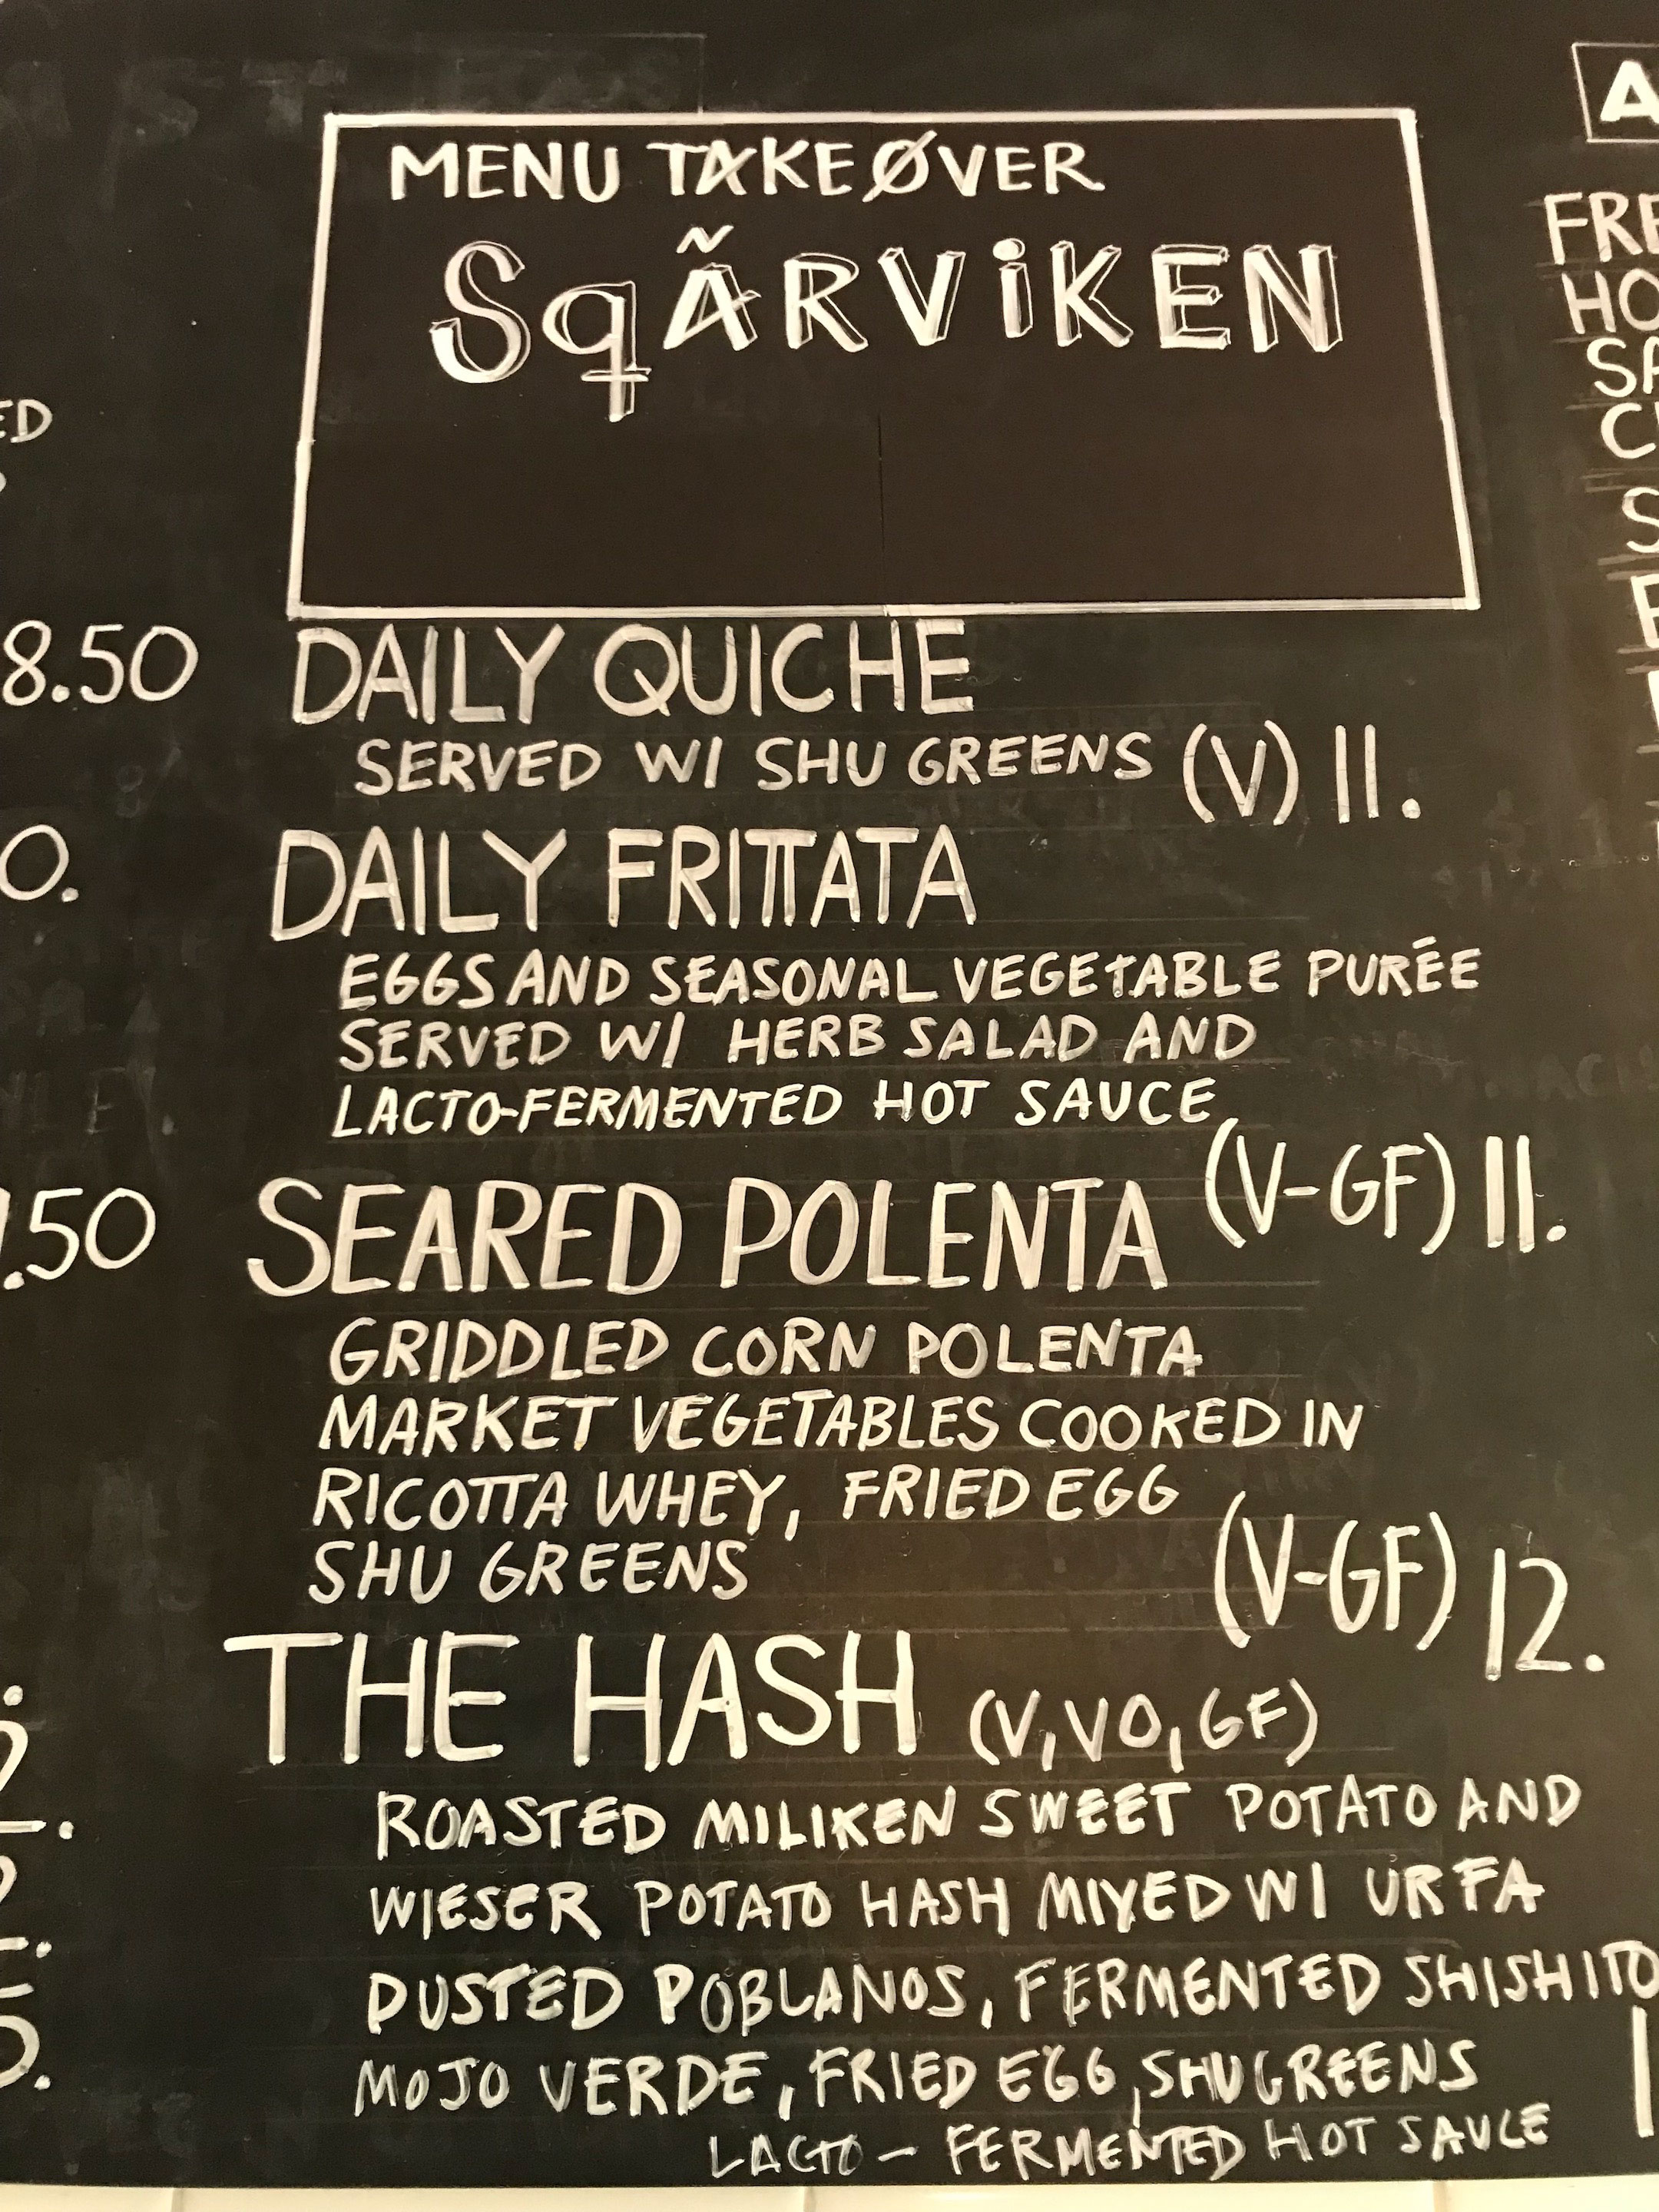 MENU TAKEØVER
SqÃRViKEN
ED
8.50
DAILY QUICHE
SERVED W/ SHU GREENS (V) 11.
0.
DAILY FRITTATA
EGGS AND SEASONAL VEGETABLE PURÉE
SERVED W/ HERB SALAD AND
LACTO-FERMENTED HOT SAUCE
(V-GF) 11.
.50
SEARED POLENTA
GRIDDLED CORN POLENTA
MARKET VEGETABLES COOKED IN
RICOTTA WHEY, FRIED EGG
SHU GREENS
(V-GF) 12.
THE HASH (V, VO, GF)
ROASTED MILIKEN SWEET POTATO AND
WIESER POTATO HASH MIXED W/ URFA
DUSTED POBLANOS, FERMENTED SHISHITO
MOJO VERDE, FRIED EGG, SHU GREENS
LACTO - FERMENTED HOT SAUCE
A
FRE
HO
SA